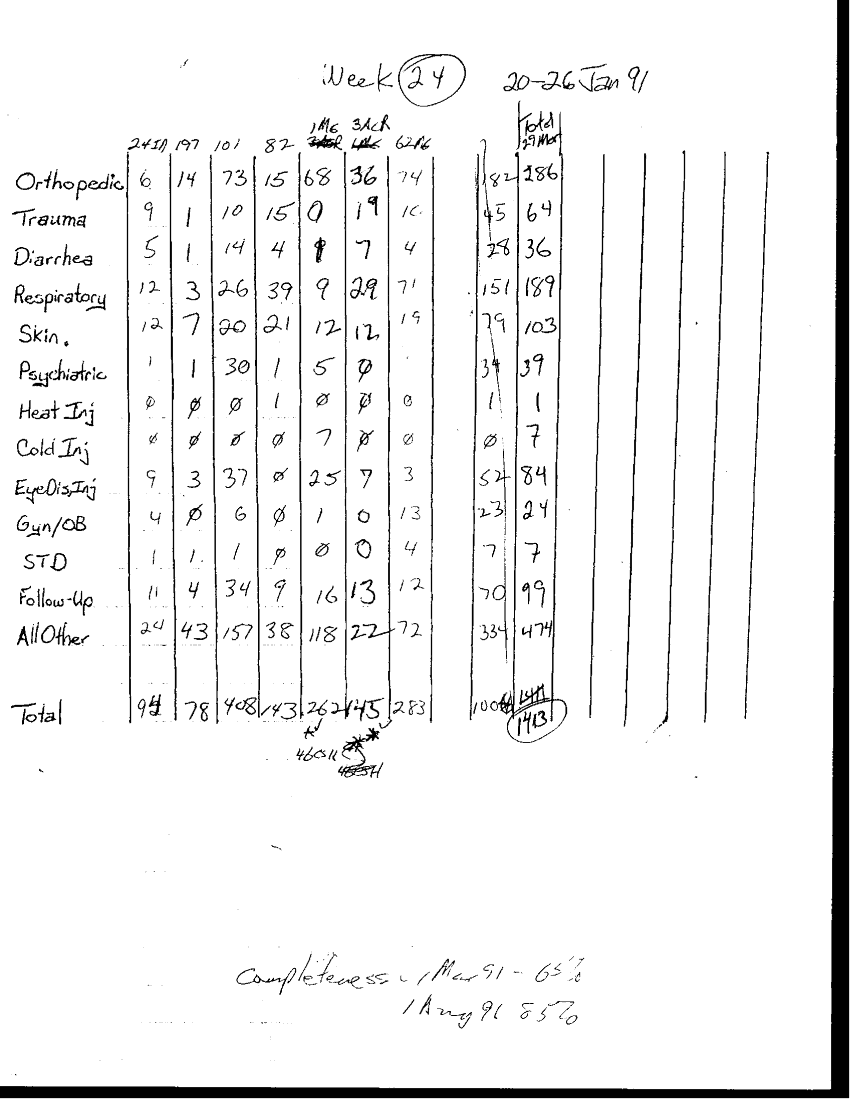 Week 24 20-26 Jan 91
1MG 3ACR Total
24ID 197 101 82 62MG 29 Mar
Orthopedic 6 14 73 15 68 36 74 182 286
Trauma 9 1 10 15 0 19 10 45 64
Diarrhea 5 1 14 4 1 7 4 28 36
Respiratory 12 3 26 39 9 29 71 151 189
Skin. 12 7 20 21 12 12 19 79 103
Psychiatric 1 1 30 1 5 Ø 34 39
Heat Inj Ø Ø Ø 1 Ø Ø 0 1 1
Cold Inj Ø Ø Ø Ø 7 Ø Ø Ø 7
EyeDis,Inj 9 3 37 Ø 25 7 3 52 84
Gyn/OB 4 Ø 6 Ø 1 0 13 23 24
STD 1 1 1 Ø Ø 0 4 7 7
Follow-Up 11 4 34 9 16 13 12 70 99
All Other 24 43 157 38 118 22 72 334 474
Total 94 78 408 143 262 145 283 1413
* **
46CSH
Completeness - 1 Mar 91 - 65%
1 Aug 91 85%